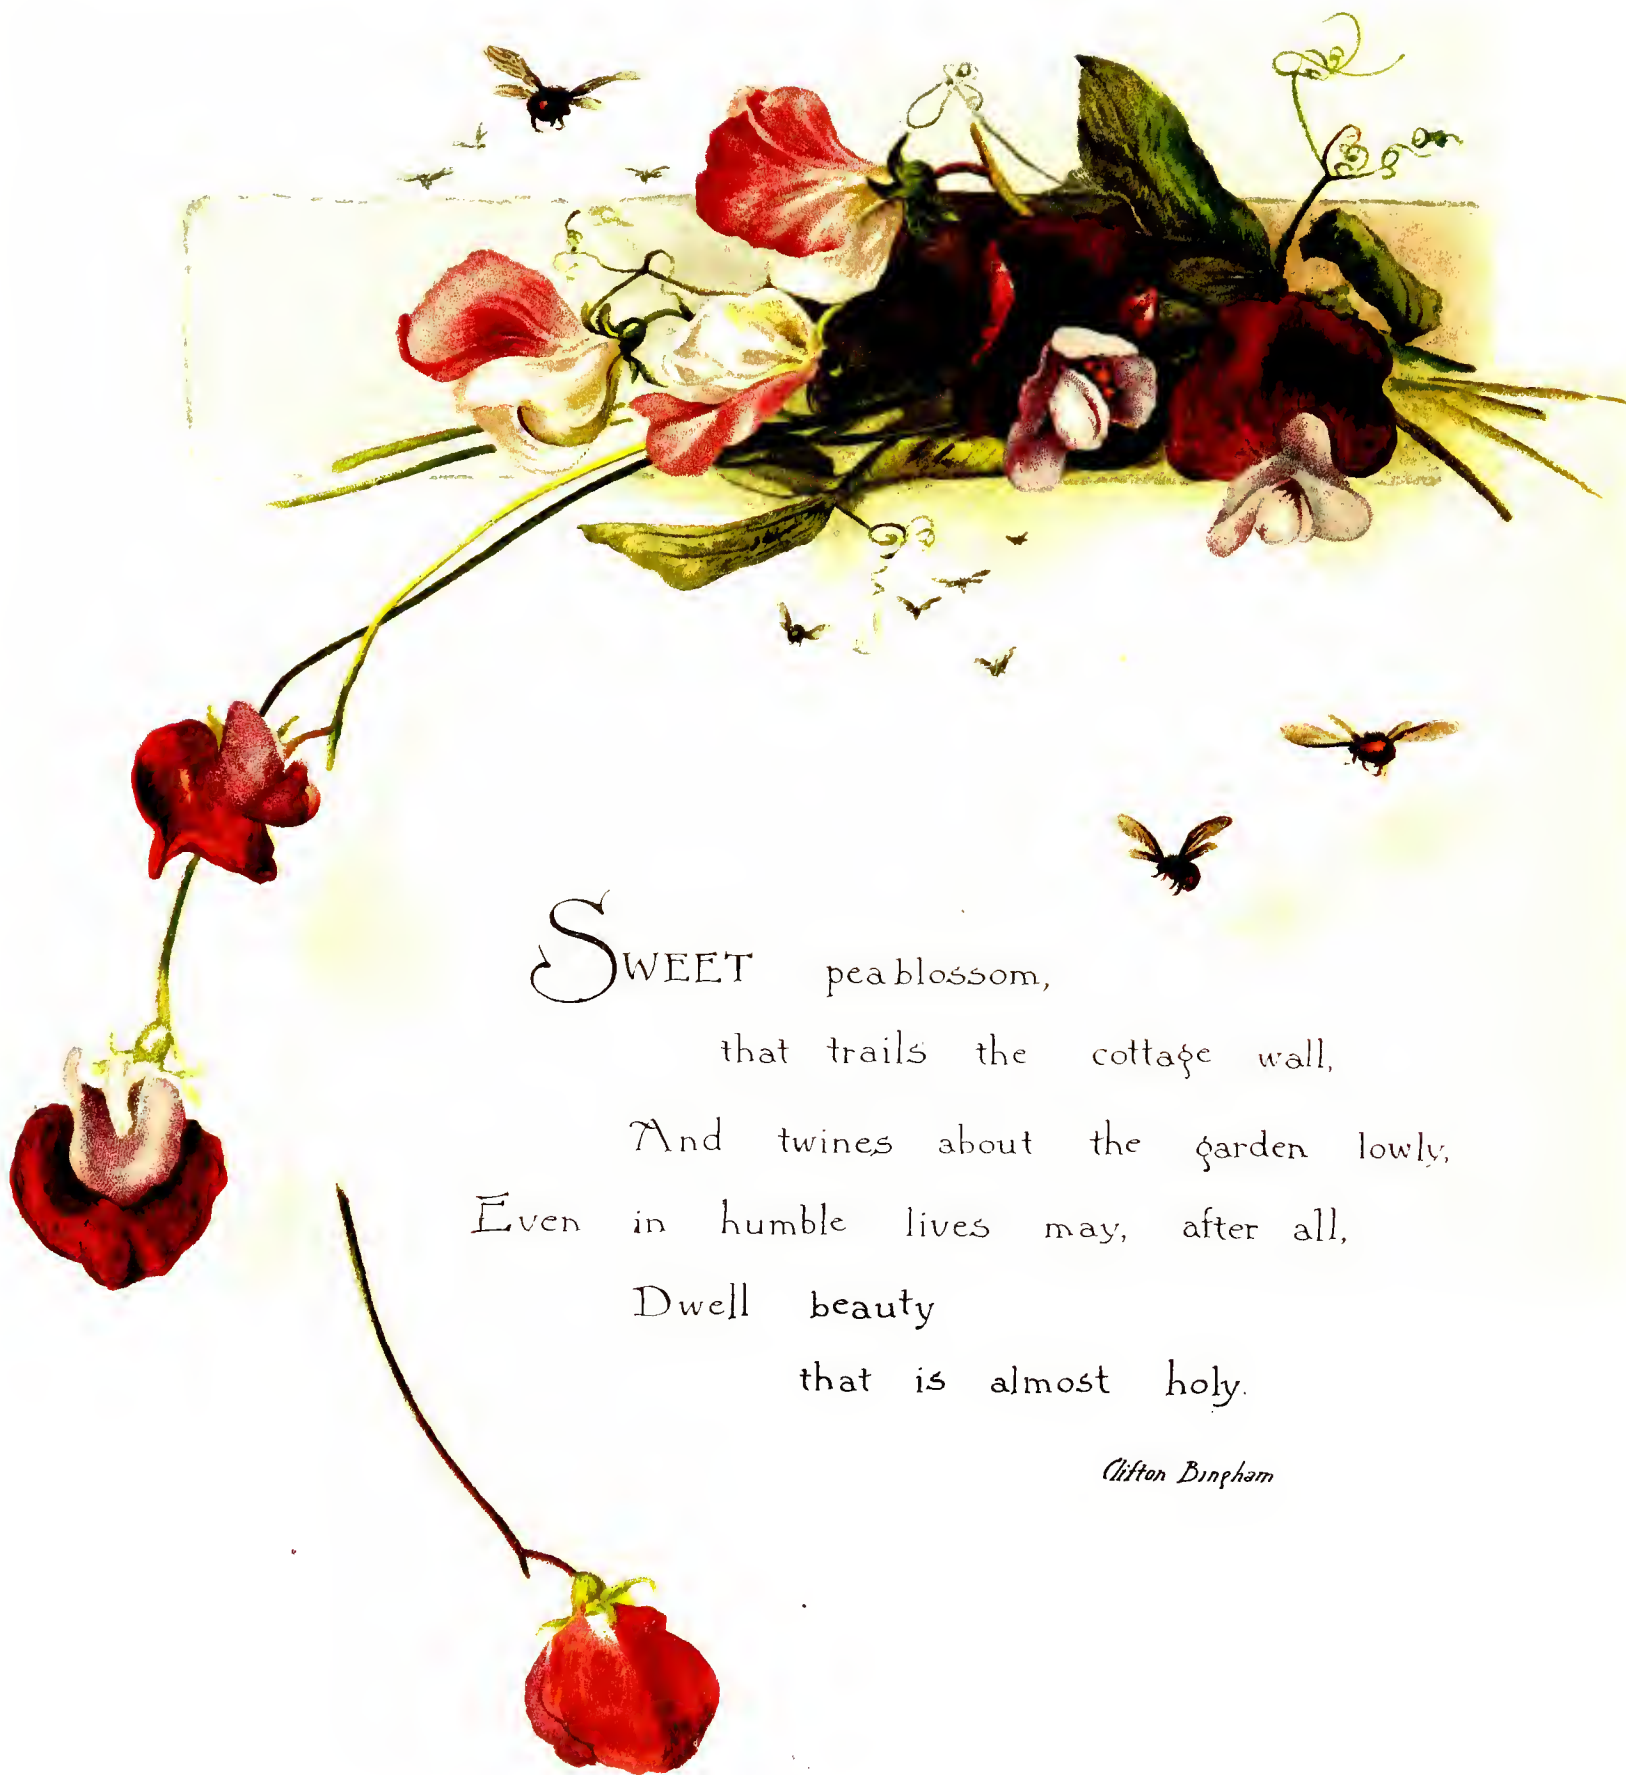 SWEET pea blossom,
that trails the cottage wall,
And twines about the garden lowly,
Even in humble lives may, after all,
Dwell beauty
that is almost holy.
Clifton Bingham